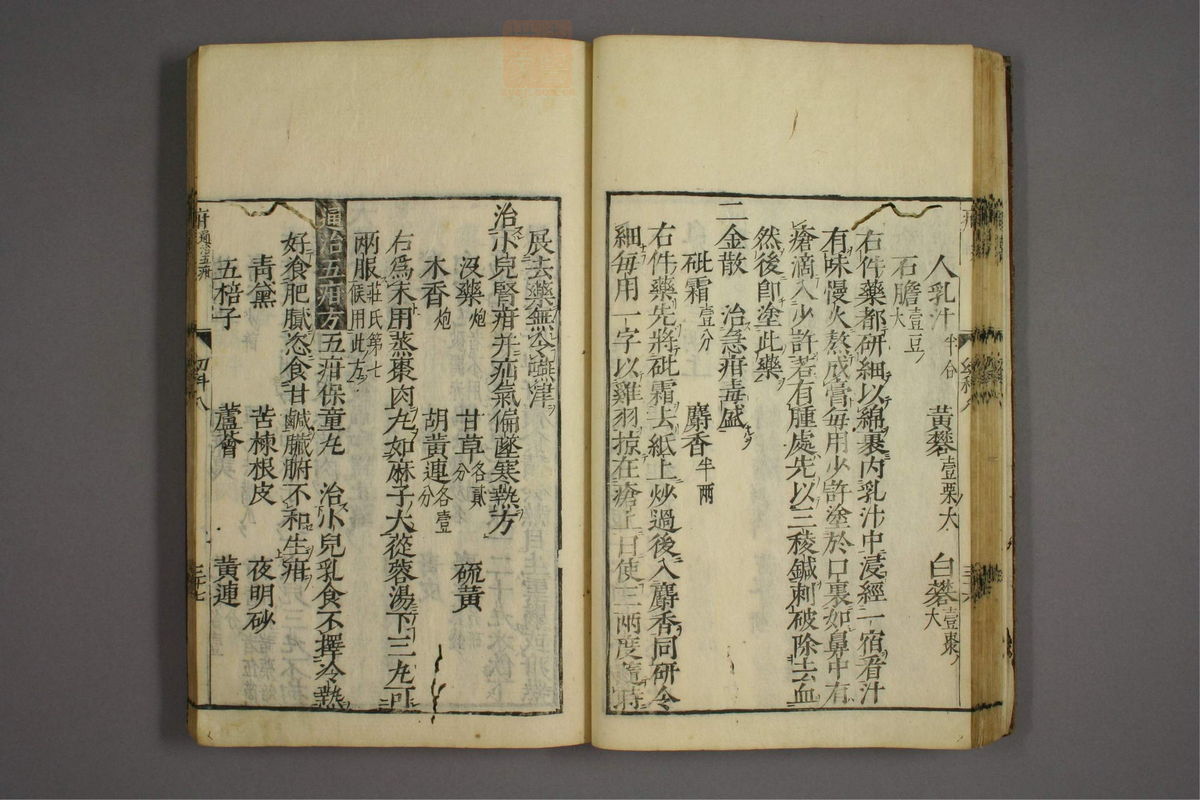 人乳汁半合 黃礬壹栗大 白礬壹棗大
石膽壹豆大
右件藥都研細以綿裹內乳汁中浸經一宿看汁
有味慢火熬成膏每用少許塗於口裏如鼻中有
瘡滴入少許若有腫處先以三稜鍼刺破除去血
然後卽塗此藥
二金散 治急疳毒盛
砒霜壹分 麝香半兩
右件藥先將砒霜去紙上炒過後入麝香同研令
細每用一字以雞羽掠在瘡上日使三兩度隨時
展去藥無令嚥津
治小兒腎疳并疝氣偏墜寒熱方
沒藥炮 甘草各貳分 硫黃
木香炮 胡黃連各壹分
右爲末用蒸棗肉丸如麻子大從蓉湯下三丸可
兩服莊氏第七候用此方
通治五疳方 五疳保童丸 治小兒乳食不擇冷熱
好飡肥膩恣食甘鹹臟腑不和生疳
靑黛 苦楝根皮 夜明砂
五棓子 蘆薈 黃連
幼科八
三十七